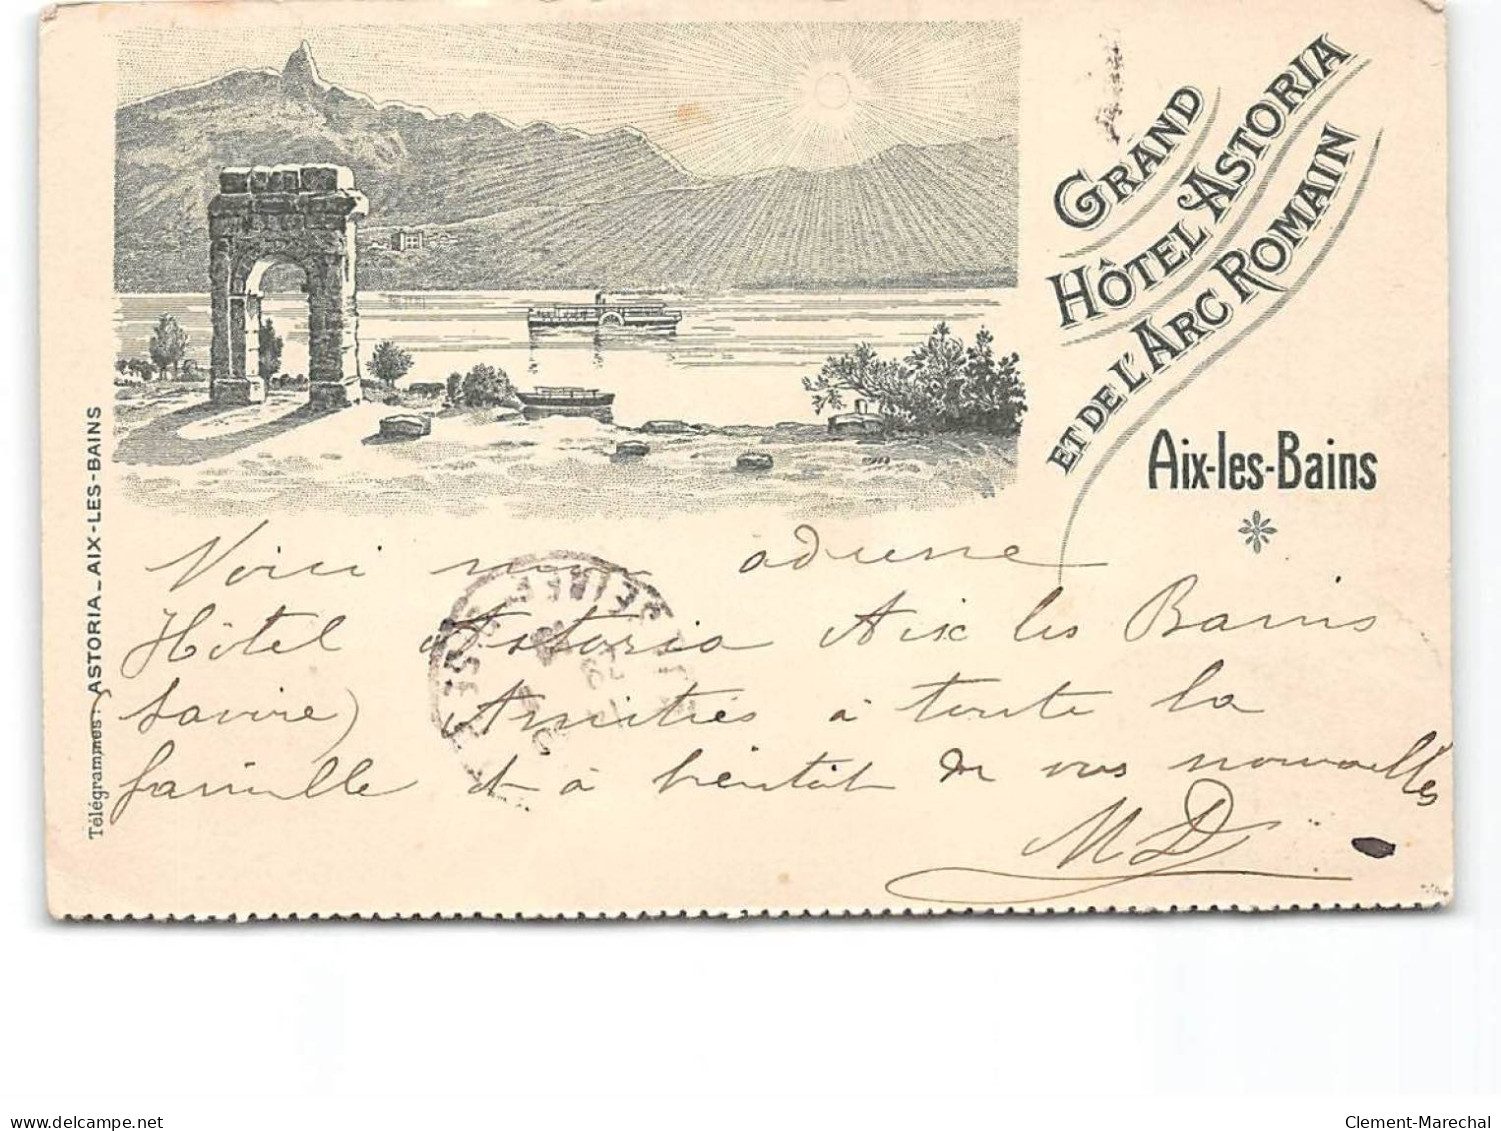 GRAND
HÔTEL ASTORIA
ET DE L'ARC ROMAIN
Aix-les-Bains
Télégrammes: ASTORIA_AIX-LES-BAINS
Voici mon adresse
Hôtel Astoria Aix les Bains
(Savoie) Amitiés à toute la
famille et à bientôt de vos nouvelles
MD
delcampe.net
Clement-Marechal